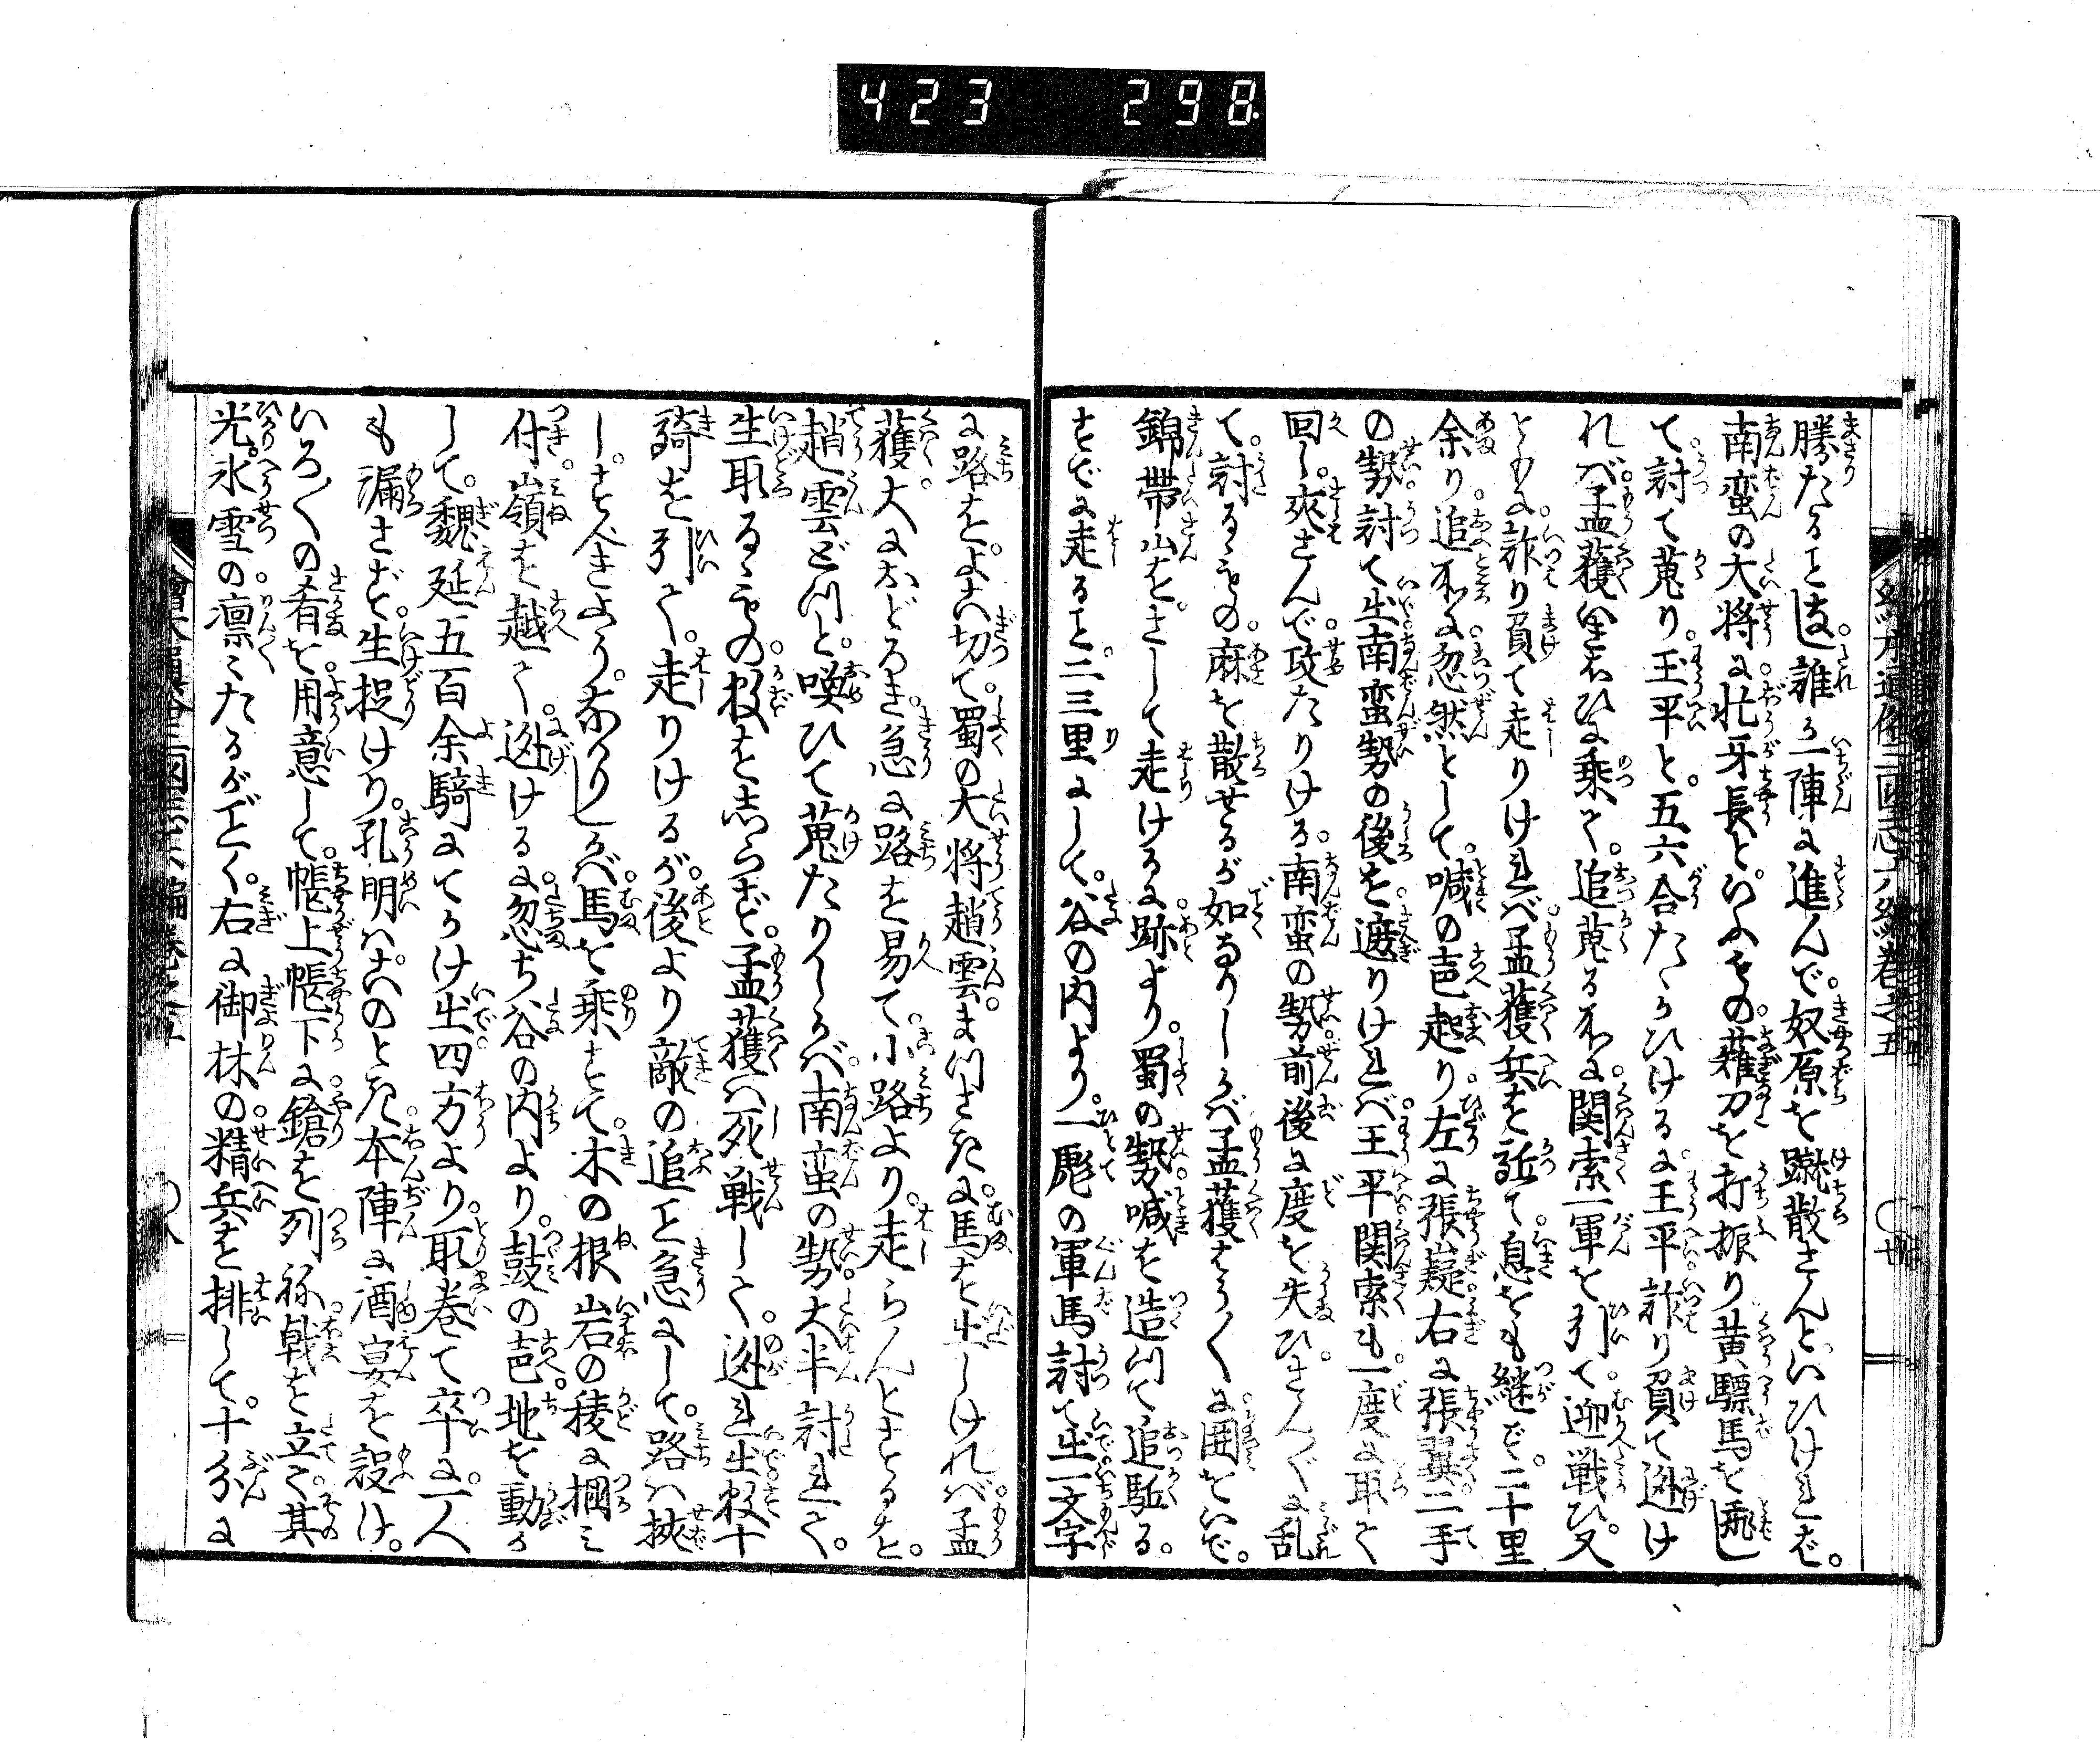 423 298
勝たること請誰か一陣に進んで。奴原を蹴散さんといひければ。
南蛮の大将に忙牙長といふもの。薙刀を打振り黄驃馬を飛し
て討て蒐り。王平と。五六合たゝかひけるに王平詐り負て迯け
れバ。孟獲いきおひに乗て。追蒐る所に。関索一軍を引て。迎戦ひ。又
ともに詐り負て走りければ。孟獲兵を駈て。息をも継ず。二十里
余り。追所に。忽然として。喊の声起り。左に張嶷。右に張翼。二手
の勢。討て出。南蛮勢の後を。遮りければ。王平関索も一度に取て
回し。夾さんで。攻たりける。南蛮の勢。前後に度を失ひ。さん〴〵に乱
て。討るゝもの。麻を散せるが如なりしかバ。孟獲やう〳〵に。囲をいで。
錦帯山を。さして走けるに。跡より。蜀の勢。喊を造つて。追駈る。
すでに走ること。二三里にして。谷の内より。一彪の軍馬討て出。一文字
に路を。よこ切て。蜀の大将趙雲。まつさきに。馬を出しけれバ。孟
獲。大におどろき。急に路を易て。小路より。走らんとするを。
趙雲どつと。喚ひて蒐たりしかバ。南蛮の勢。大半討れて。
生取るゝもの。数をしらず。孟獲ハ死戦して。迯れ出。数十
騎を引て。走りけるが。後より敵の追こと急にして。路ハ挾
し。すべきよう。なかりしかバ。馬を乗すて。木の根。岩の稜に掴み
付。山嶺を越て。迯けるに。忽ち谷の内より。鼓の声。地を動か
して。魏延五百余騎にてかけ出。四方より。取巻て卒に。一人
も漏さず。生捉けり。孔明ハ。このとき。本陣に酒宴を設け。
いろ〳〵の肴を用意して。帳上帳下に。鎗を列ね。戟を立て。其
光。氷雪の。凛ミたるがごとく。右に御林の。精兵を排して。十分に